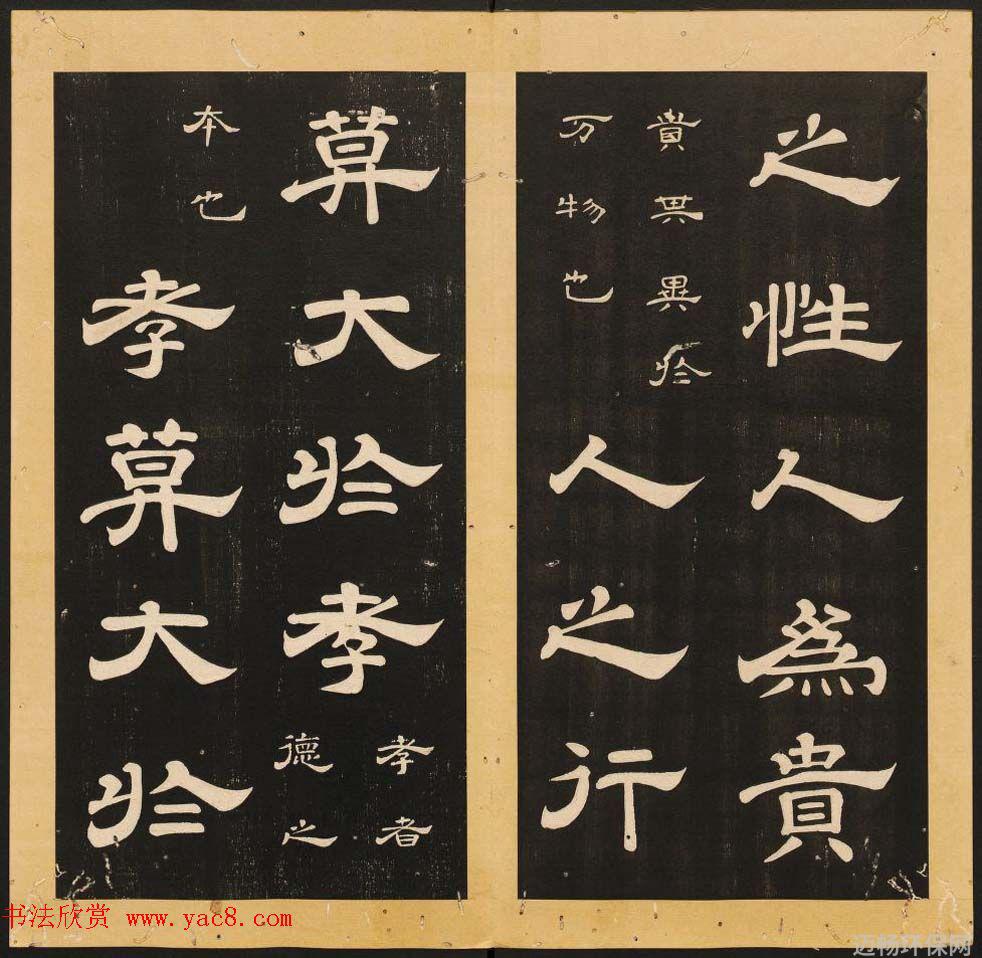 之性人為貴
貴其異於
万物也
人之行
莫大於孝
孝者
德之
本也
孝莫大於
书法欣赏 www.yac8.com
迈畅环保网